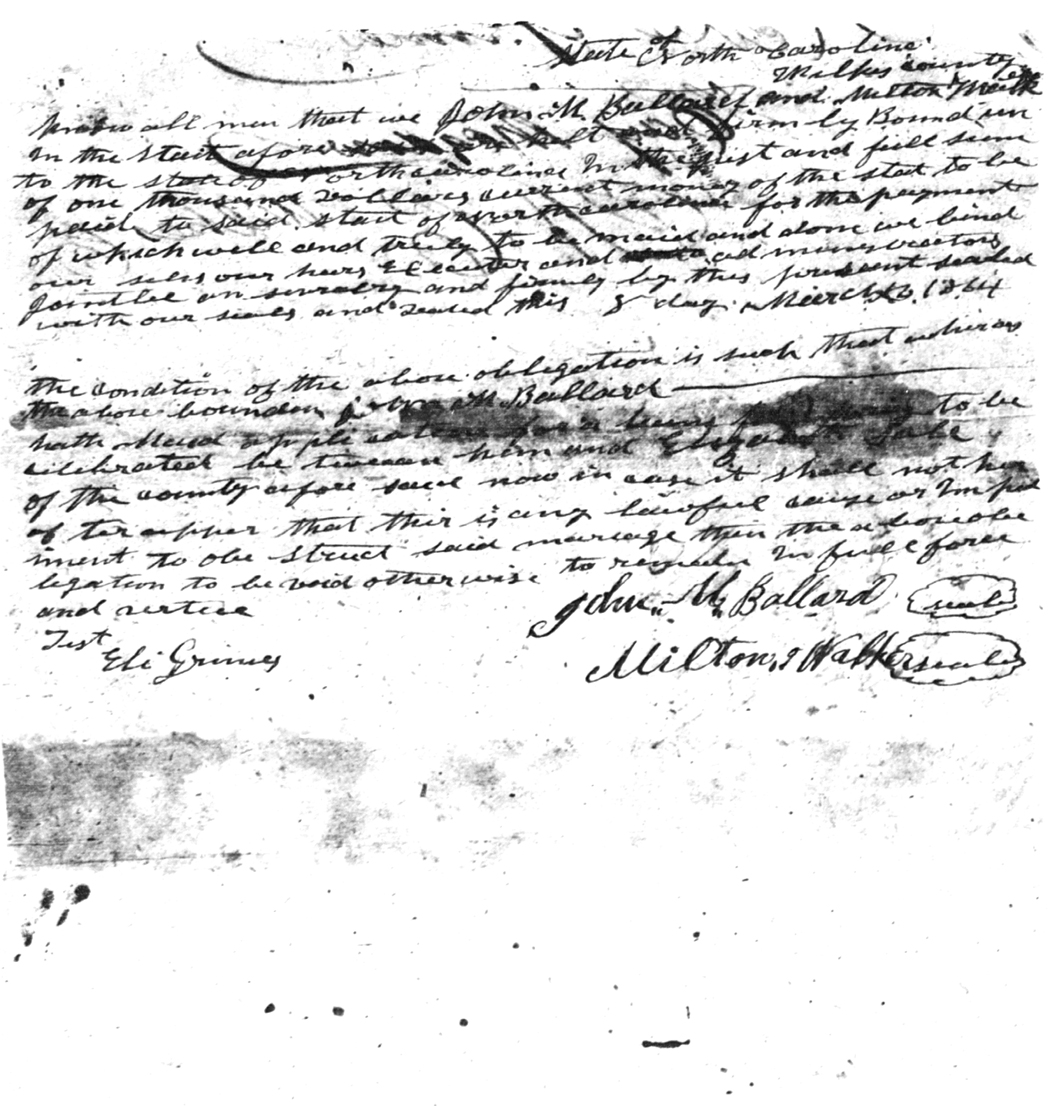 State of North Caroline
Wilkes County
know all men that we John M Ballard and Milton Walk
In the Stait afore held and firmly Bound un
to the state of North carolina In the just and full sum
of one thousand Dollars current money of the stat to be
paid to said stait of North carolina for the payment
of which well and truly to be maid and done we bind
our selvs our heirs Executer and ad minnestrators
Jointlee an severalry and firmly by this present sealed
with our seals and dated this 8 day March 1864
the condition of the above obbligation is such that wheras
the above bounden John M Ballard
hath Maid appli to be
cilebrated be tweean him and Elizabeth
of the county afore said now in case it shall not her
of ter apper that thir is any lawful cause or Im ped
iment to obe struct said mariage then the a bove obe
legation to be void other wise to remain In full force
and vertue
Test
Eli Grimes
John M Ballard seal
Milton J Walker seal